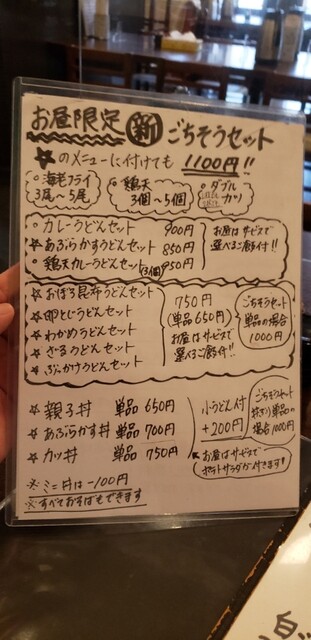 お昼限定 新 ごちそうセット
☆のメニューに付けても 1100円!!
○海老フライ
3尾〜5尾
○鶏天
3個〜5個
○ダブル
カツ
○カレーうどんセット 900円
☆あぶらかすうどんセット 850円
○鶏天カレーうどんセット(3個) 950円
お昼はサービスで
選べるご飯付!!
☆おぼろ昆布うどんセット
☆卵とじうどんセット
☆わかめうどんセット
☆ざるうどんセット
☆ぶっかけうどんセット
750円
(単品650円)
お昼はサービスで
選べるご飯付!!
ごちそうセット
単品の場合
1000円
☆親子丼 単品 650円
☆あぶらかす丼 単品 700円
☆カツ丼 単品 750円
小うどん付
+200円
ごちそうセット
単品の
場合1000円
お昼はサービスで
ポテトサラダが付きます!
※ミニ丼は-100円
※すべておそばもできます